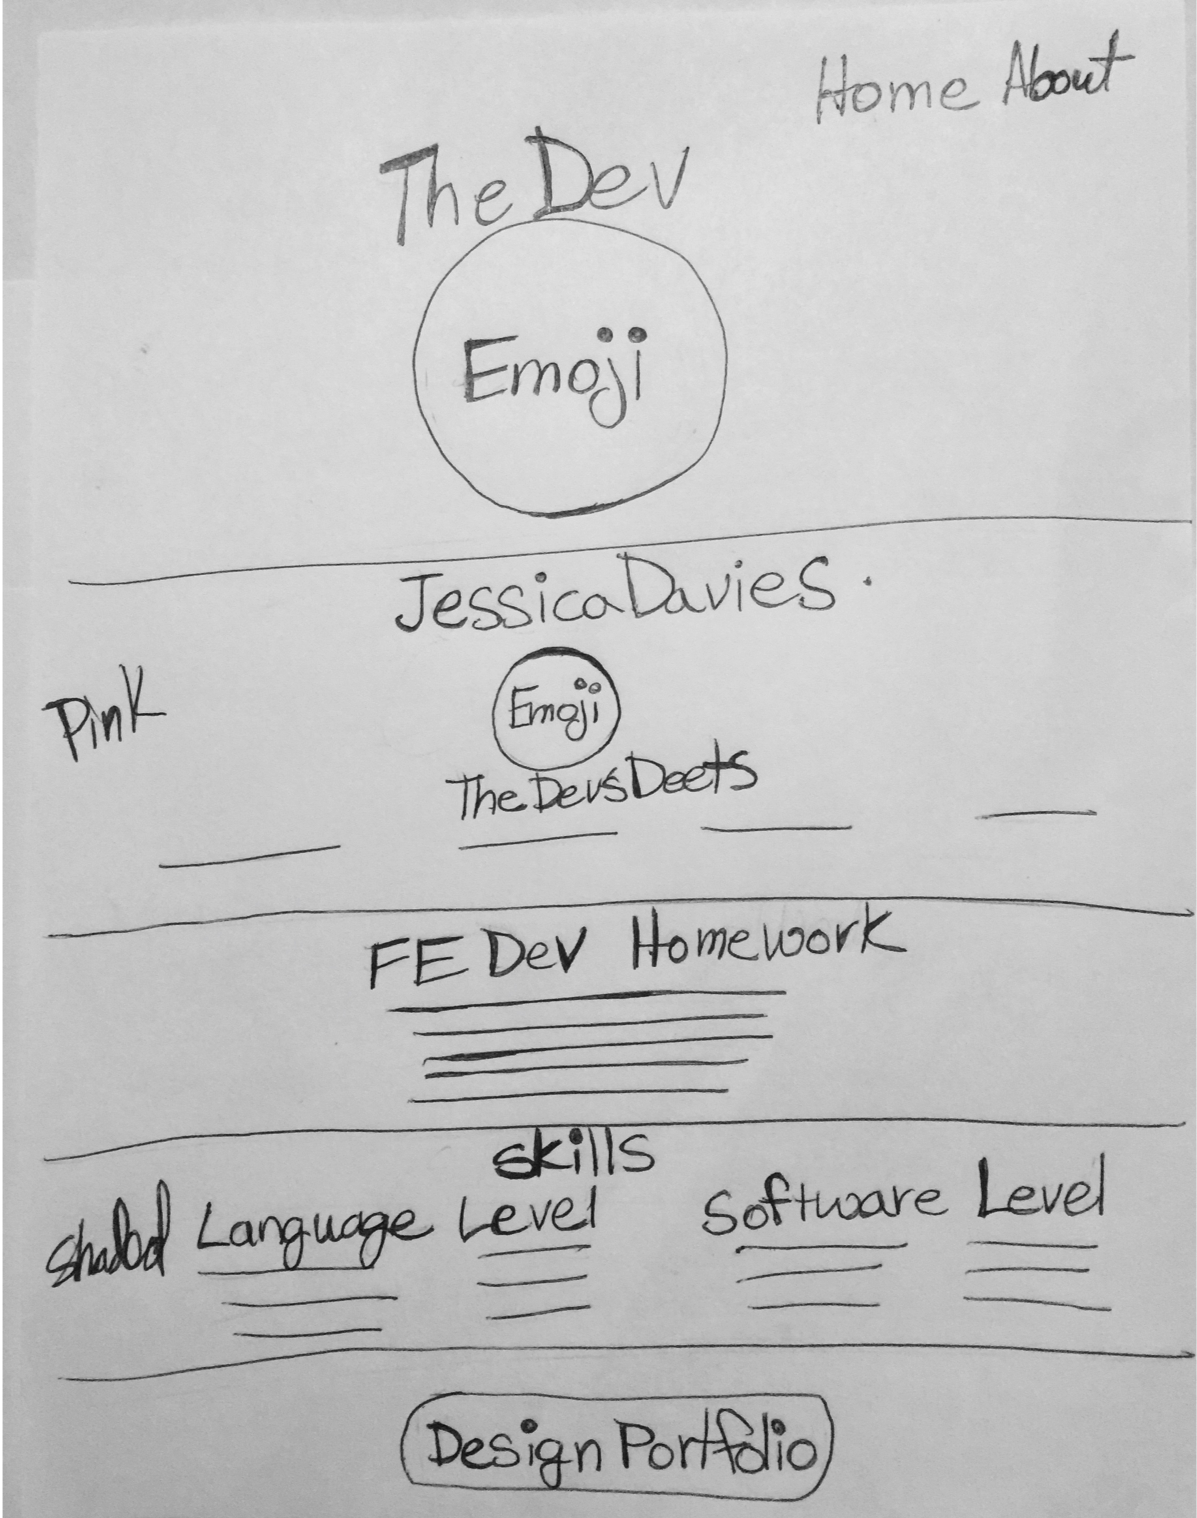 Home About
The Dev
Emoji
Jessica Davies.
Pink
Emoji
The Devs Deets
FE Dev Homework
Skills
Shaded Language Level Software Level
Design Portfolio